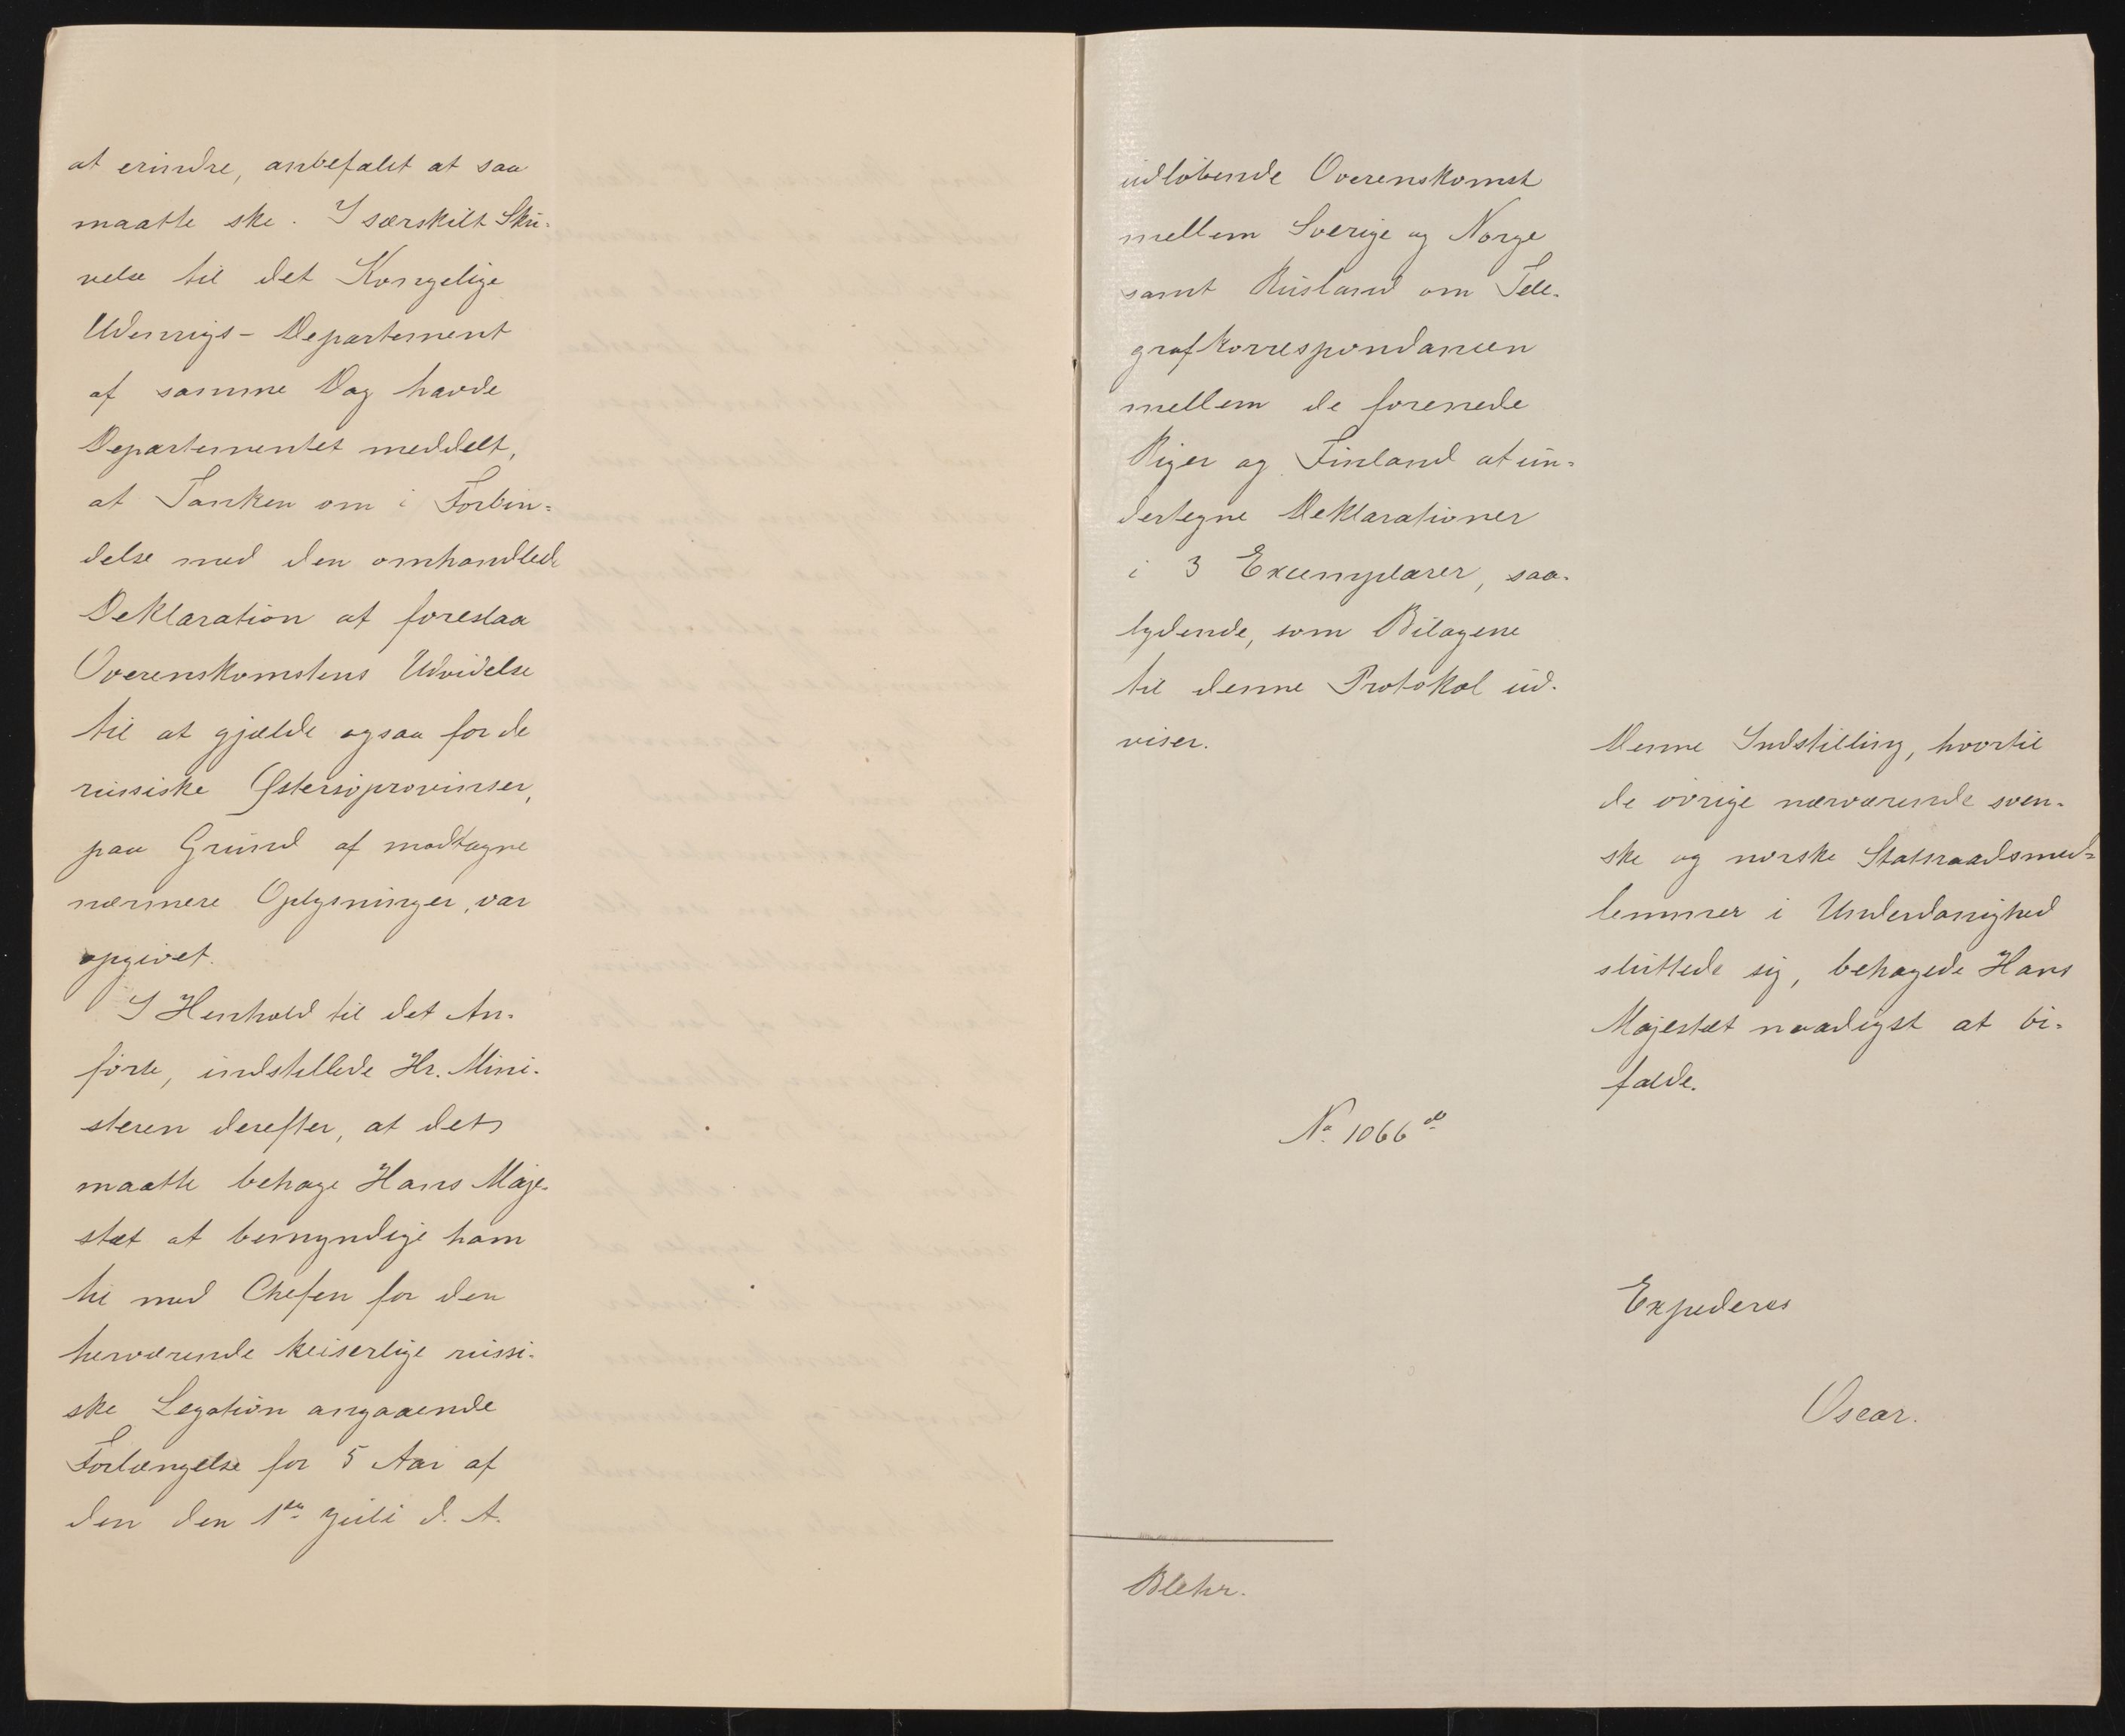 at erindre, anbefalet at saa
maatte ske. I særskilt Skri-
velse til det Kongelige
Udenrigs-Departement
af samme Dag havde
Departementet meddelt,
at Tanken om i Forbin-
delse med den omhandlede
Deklaration at foreslaa
Overenskomstens Udvidelse
til at gjælde ogsaa for de
russiske Østersøprovinser,
paa Grund af modtagne
nærmere Oplysninger, var
opgivet.
I Henhold til det An-
førte, indstillede Hr. Mini-
steren derefter, at det
maatte behage Hans Maje-
stæt at bemyndige ham
til med Chefen for den
herværende keiserlige russi-
ske Legation angaaende
Forlængelse for 5 Aar af
den den 1ste Juli d. A.
udløbende Overenskomst
mellem Sverige og Norge
samt Rusland om Tele-
grafkorrespondancen
mellem de forenede
Riger og Finland at un-
dertegne Deklarationer
i 3 Exemplarer, saa-
lydende, som Bilagene
til denne Protokol ud-
viser.
Denne Indstilling, hvortil
de øvrige nærværende sven-
ske og norske Statsraadsmed-
lemmer i Underdanighed
sluttede sig, behagede Hans
Majestæt naadigst at bi-
falde.
No. 1066
Expederes
Oscar.
Blehr.